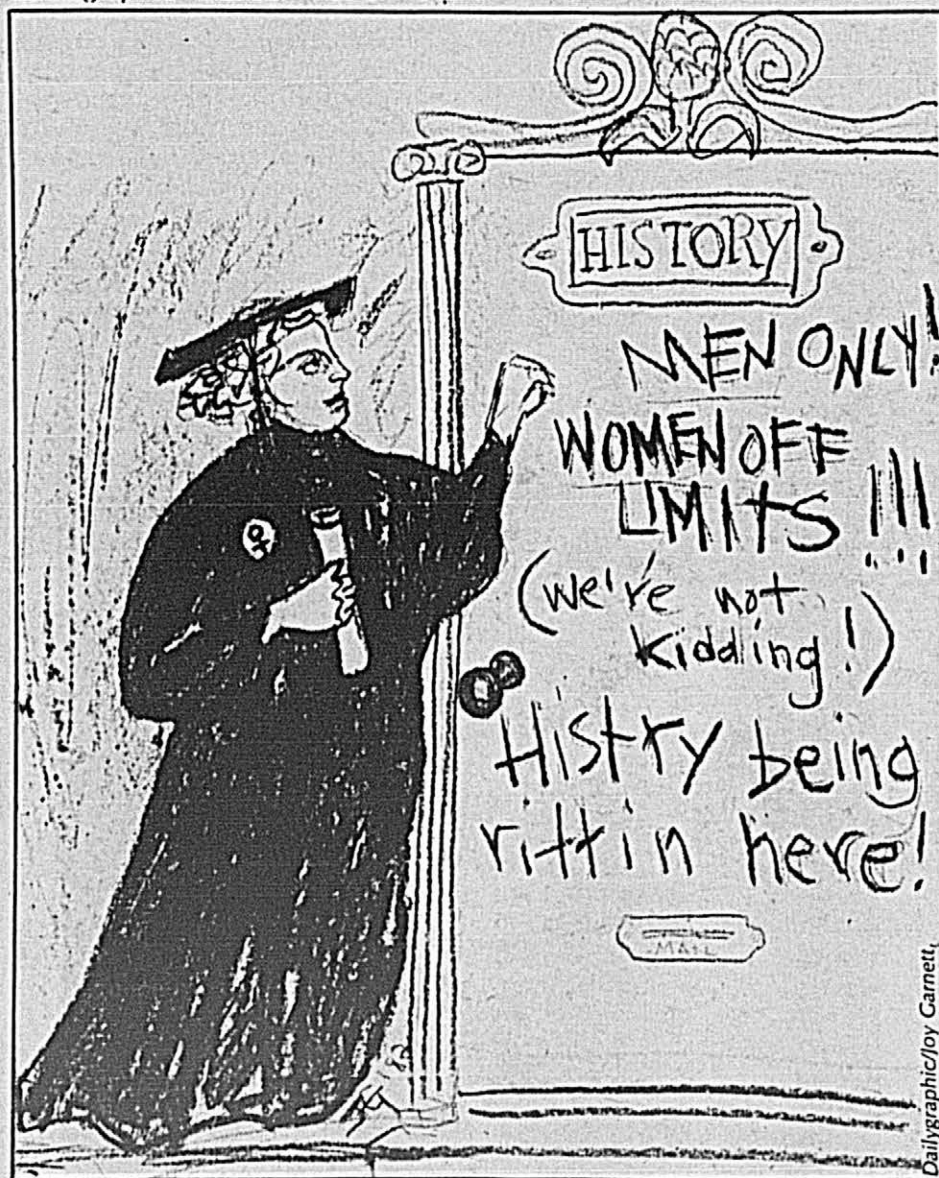 HISTORY
MEN ONLY!
WOMEN OFF
LIMITS !!!
(we're not
kidding!)
Histry being
rittin here!
MAIL
Dailygraphic/Joy Garnett